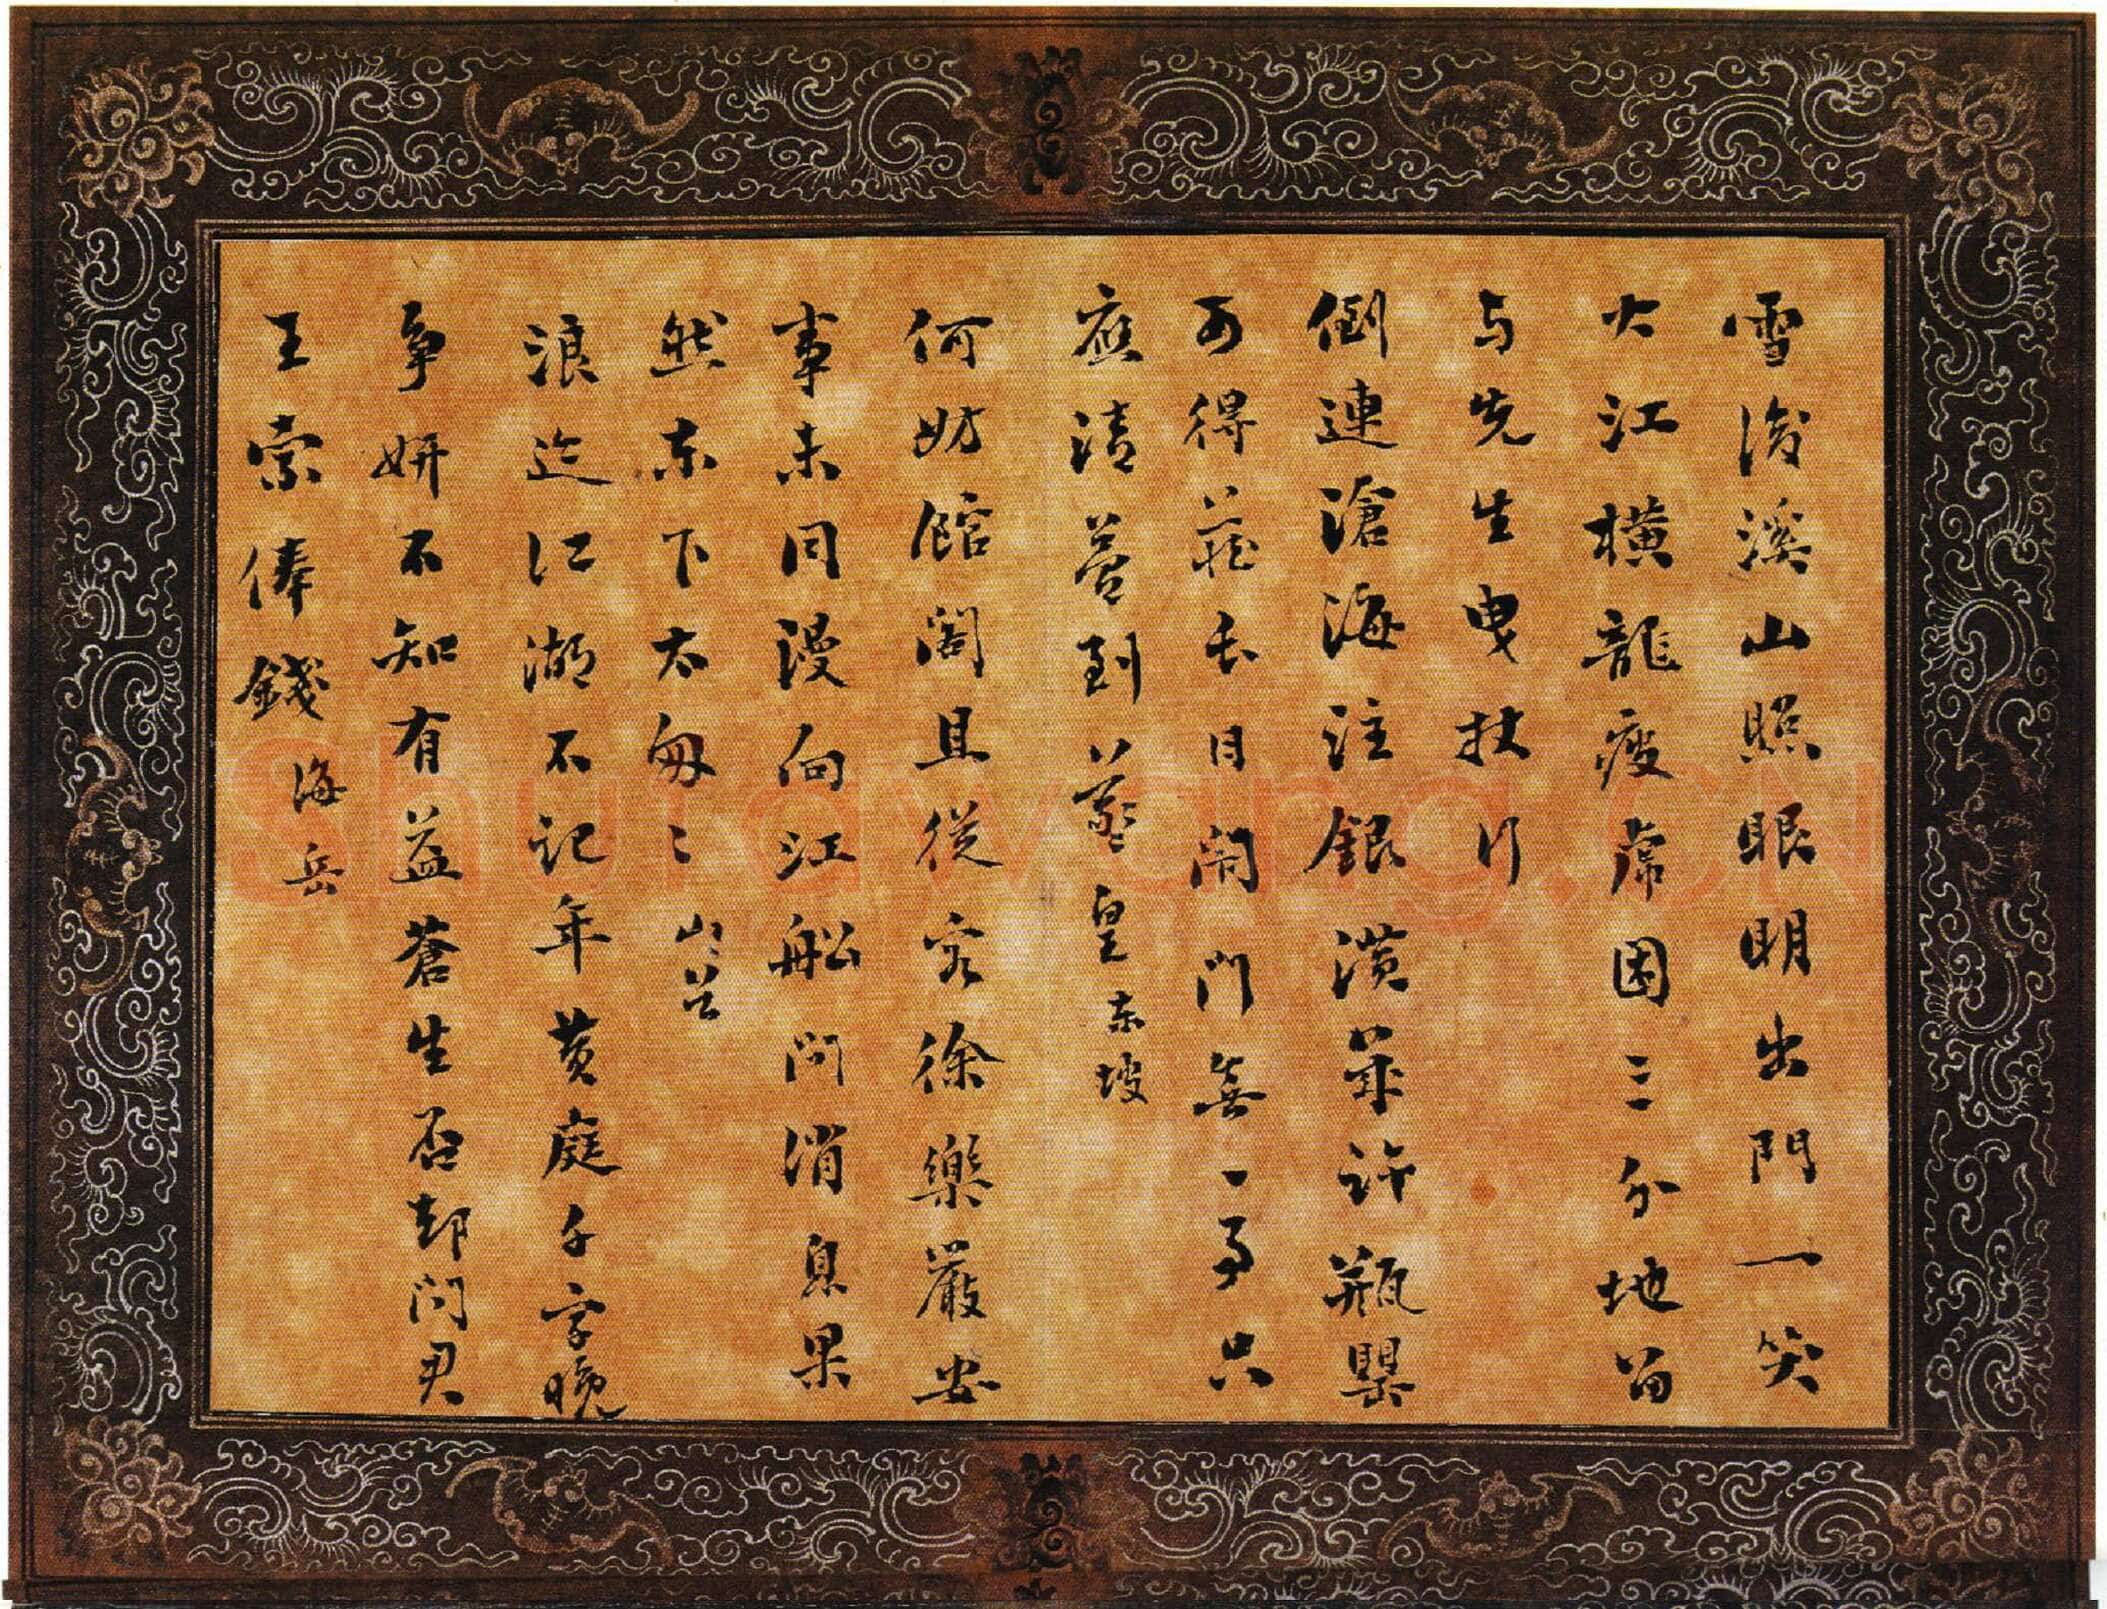 雪後溪山照眼明出門一笑
大江橫龍瘦虎困三分地留
与先生曳杖行
倒連滄海注銀潢許瓶罌
可得藏長日閉門無一事只
應清夢到羲皇 東坡
何妨館閣且從容徐樂嚴安
事未同漫向江船問消息果
然東下太匆〻 山谷
浪迹江湖不記年黃庭千字晚
爭妍不知有益蒼生否却問君
王索俸錢 海岳
Shufawang.CN